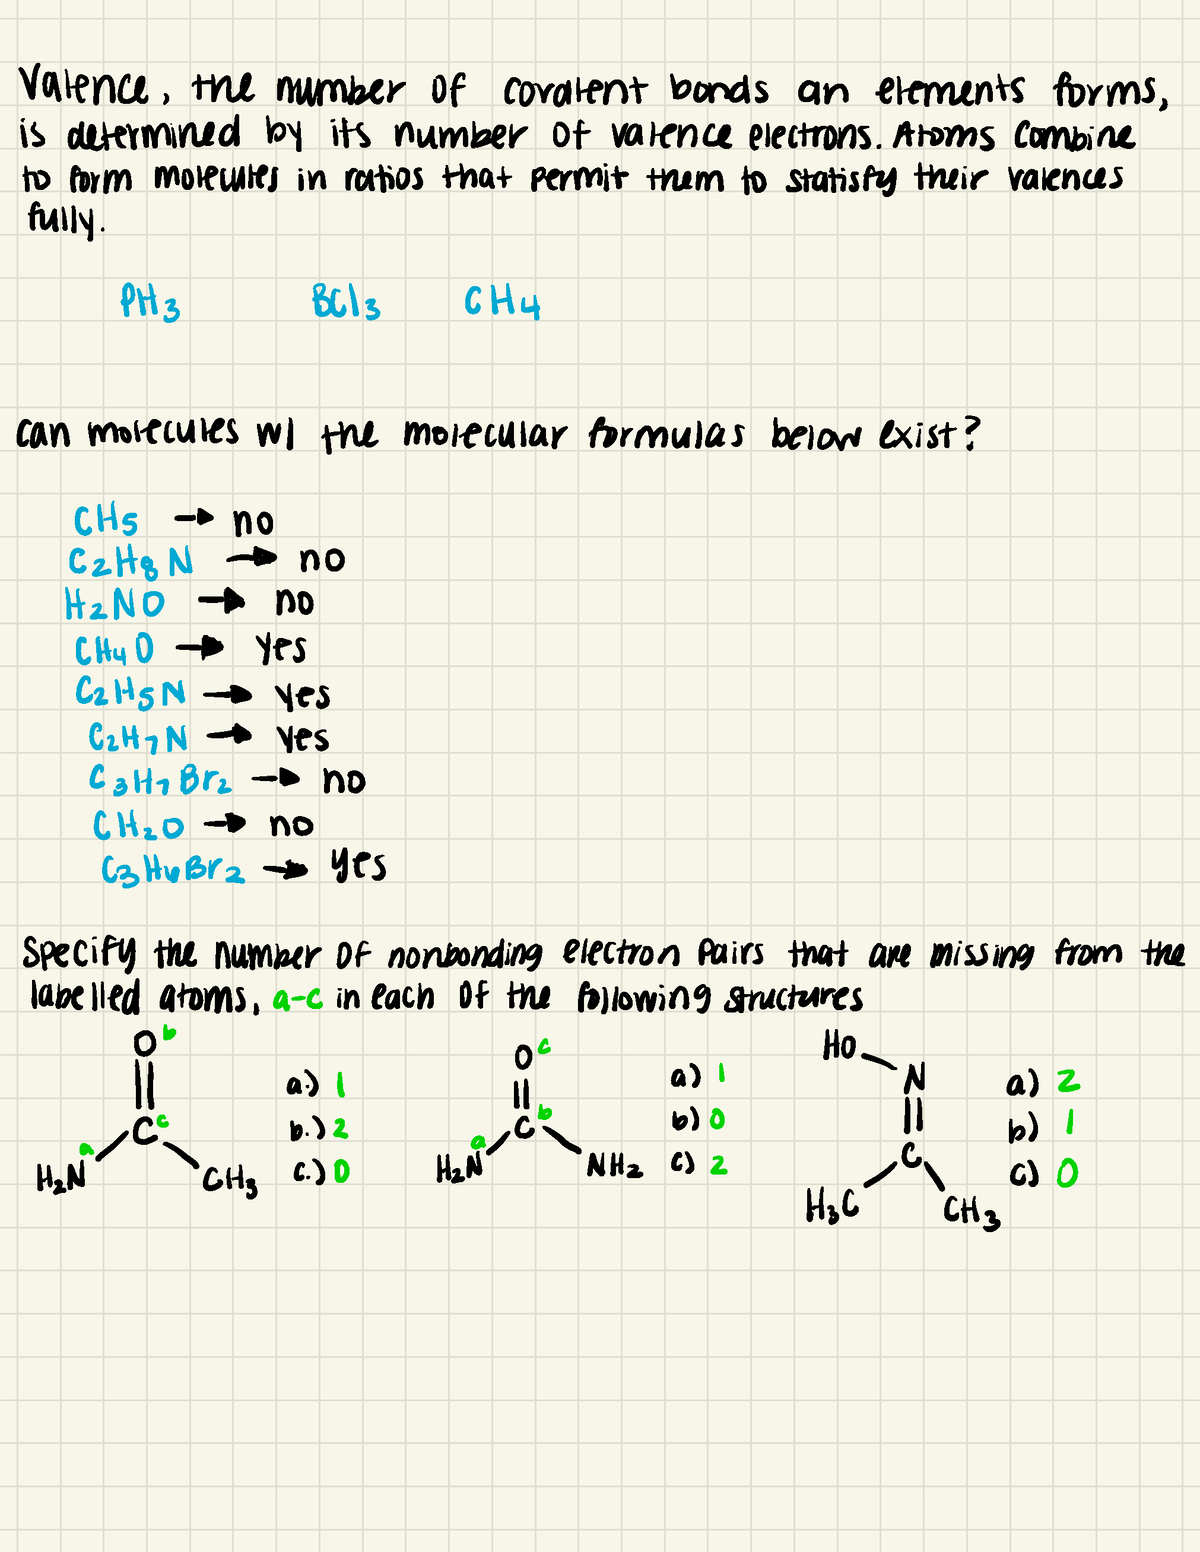 Valence, the number of covalent bonds an elements forms,
is determined by its number of valence electrons. Atoms combine
to form molecules in ratios that permit them to statisfy their valences
fully.
PH3 BCl3 CH4
can molecules w/ the molecular formulas below exist?
CH5 → no
C2H8N → no
H2NO → no
CH4O → yes
C2H5N → yes
C2H7N → yes
C3H7Br2 → no
CH2O → no
C3H6Br2 → yes
Specify the number of nonbonding electron pairs that are missing from the
labelled atoms, a-c in each of the following structures
O b
C c
a
H2N
CH3
a.) 1
b.) 2
c.) 0
O c
C b
a
H2N
NH2
a) 1
b) 0
c) 2
HO
N
C
H3C
CH3
a) 2
b) 1
c) 0